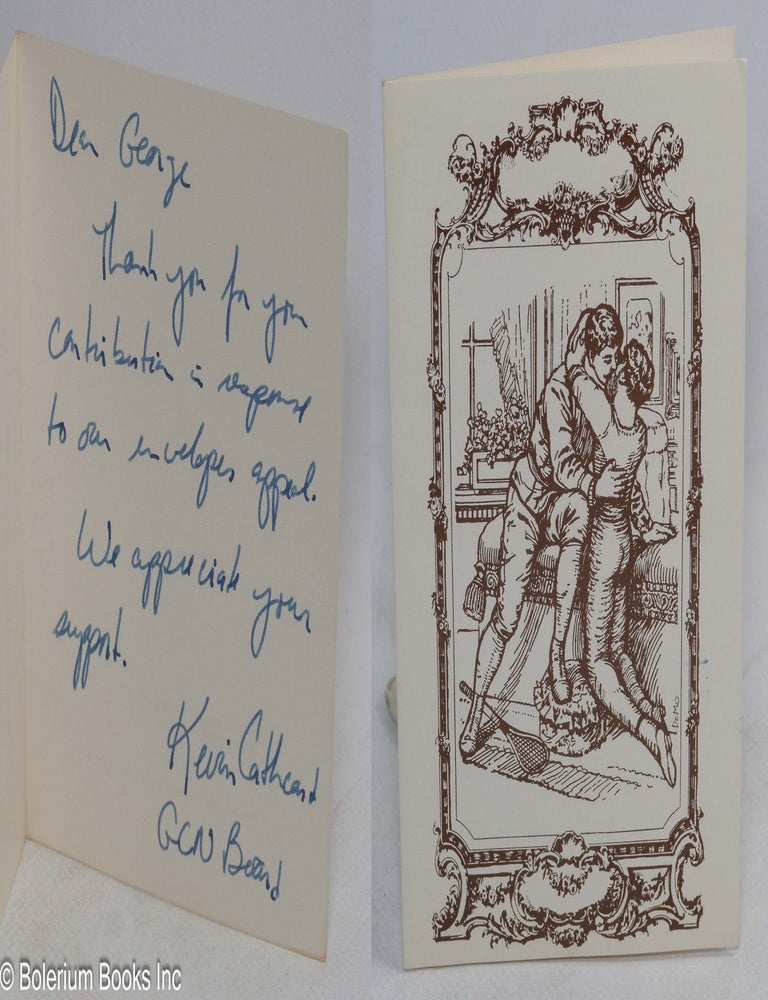 Dear George
Thank you for your
contribution in response
to our envelopes appeal.
We appreciate your
support.
Kevin Cathcart
GCN Board
DeMO
© Bolerium Books Inc